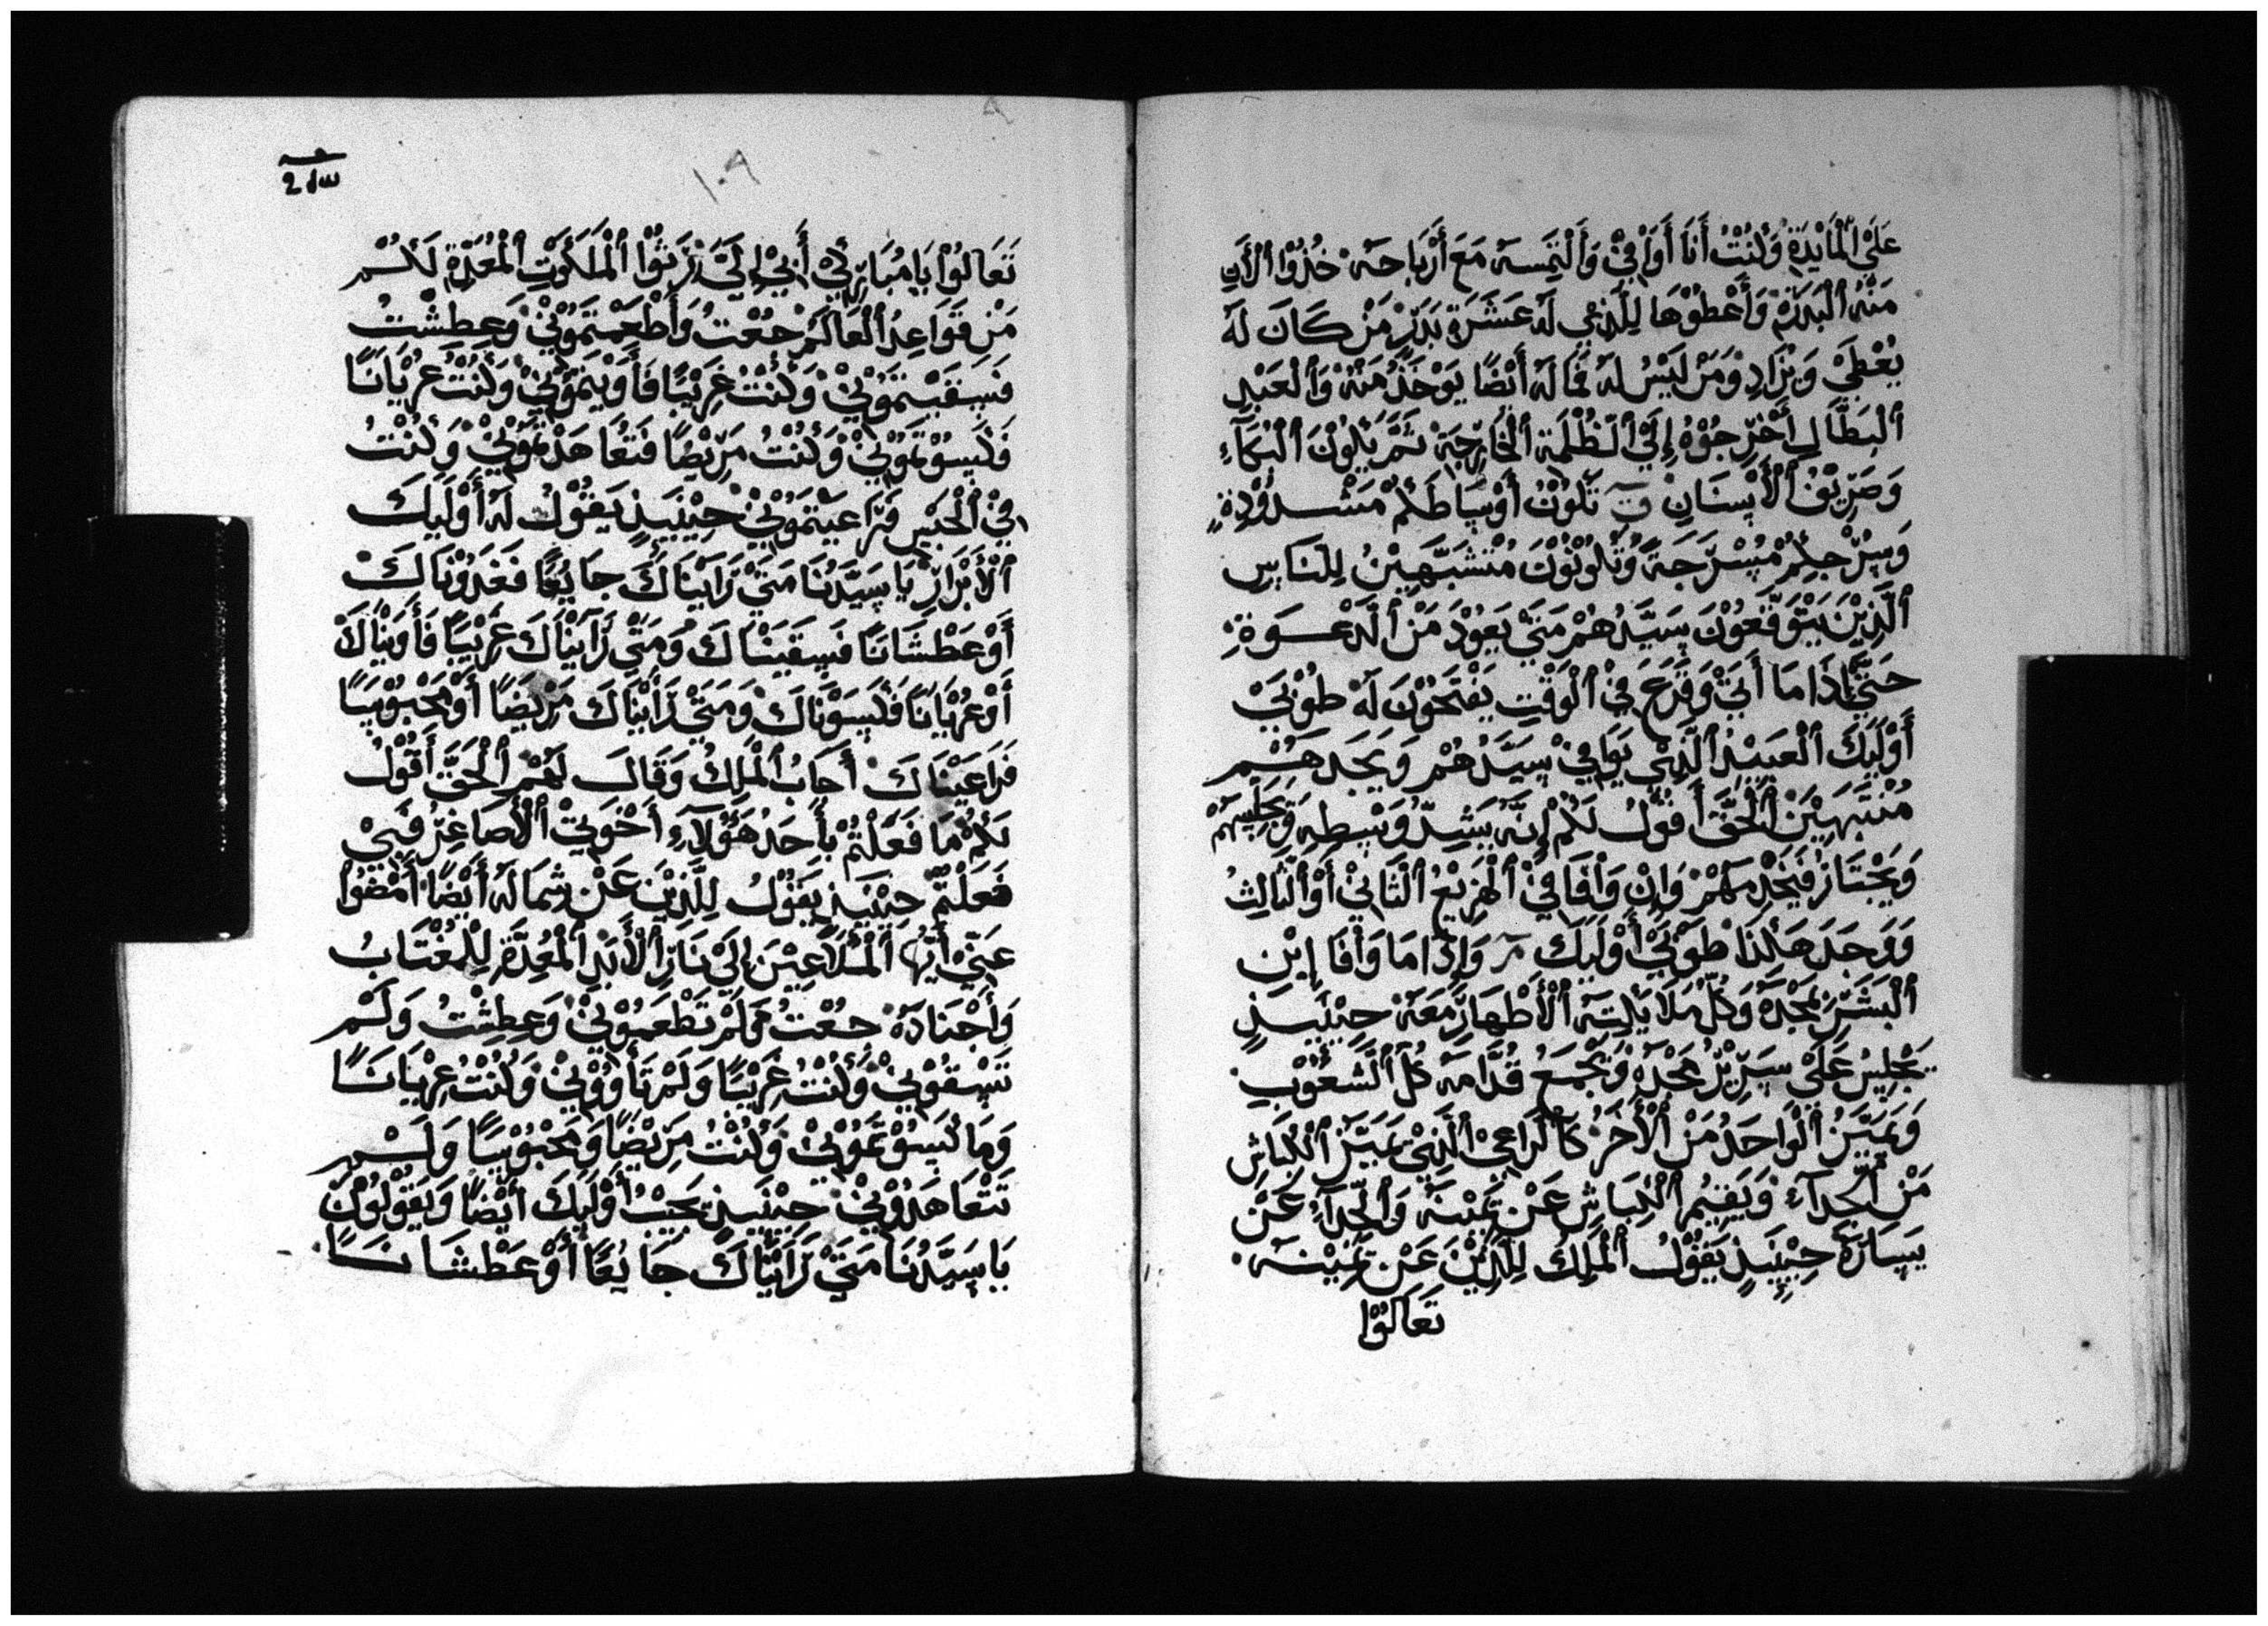 عَلَى الْمَايْدَةِ وَكُنْتُ أَنَا أُوَافِيْ وَأَلْتَمِسهُ مَعَ أَرْبَاحَهُ خُذُوْا الْأَنِ
مَنْهُ الْبَدَرَةِ وَأَعْطُوْهَا لِلَّذِيْ لَهُ عَشَرَةِ بَدَرْ مَنْ كَانَ لَهُ
يُعْطَيْ وَيُزَادِ وَمَنْ لَيْسُ لَهُ فَمَا لَهُ أَيْضًا يَوْخَذُ مَنْهُ وَالْعَبْدِ
الْبَطَّالِ أَخْرِجُوْهُ إِلَيْ الْظُلْمَةِ الْخَارِجَةْ ثَمَّ يَكُوْنَ الْبُكَآءِ
وَصَرِيْفُ الْأَسْنَانِ تَكُوْنُ أَوْسَاطَكُمْ مَشْدُوْدِةٍ
وَسِرْجِكُمْ مُسْرَّجَةً وَتَكُوْنُوْنَ مُتْشَبَّهِيْنُ لِلنَاسِ
الَّذِيْنَ يَتْوَقَّعُوْنَ سَيَّدُهُمْ مَتَيْ يَعُوْدَ مَنْ الَدْعْوَةِ
حَتَيَّ إِذَا مَا أَتَيْ وَقَرَعَ فِيْ الْوَقْتِ يَفْتَحُوْنَ لَهُ طُوْبَيْ
أَوْلَيِكَ الْعَبِيْدُ الَّذِيْ يَوَافِيْ سِيَّدُهُمْ وَيَجَدهَمُ
مُنْتَبَهِيْنَ الْحَقَّ أَقُوْلُ لَكُمْ إِنَّهُ يَشِدُّ وَسِطِهِ وَيَجَلِسَهُمْ
وَيَجْتَازُ فَيَخْدِمَهُمْ وَإِنْ وَافَا فِيْ الْهَزِيْعُ الْثَانِيْ أَوْ الْثَالِثُ
وَوَجَدَ هَكَذَا طُوَبَيْ أَوْلَيِكَ وَإِذَا مَا وَافَا إِبْنِ
الْبَشَرِ بِمَجْدَهُ وَكُلْ مَلَايَكِتَهُ الْأَطْهَارُ مَعَهُ حِيْنَيِذٍ
يَجْلِسُ عَلَيْ سَرِيْرُ مَجْدَهُ وَيَجْمَعُ قُدَّامَهُ كُلَ الْشُعُوْبِ
وَيَمَيَّزُ الْوَاحَدُ مَنْ الْأَخَرُ كَالْرَاعِيْ الَّذِيْ يَمَيَّزُ الْكِبَاشِ
مَنْ الْجَدَآءِ وَيَقِيْمُ الْكِبَاشِ عَنْ يَمَيْنَهُ وَالْجَدَآءِ عَنْ
يَسَارَهُ حِيْنَيِذٍ يَقُوْلُ الْمَلِكُ لِلَّذِيْنَ عَنْ يَمِيْنَهُ
تَعَالَوْا
سـﻠ 2
١٠٩
تَعَالَوْا يَا مُبَارِكِيْ أَبِيْ إِلَيَّ تَرِثُوْا الْمَلَكُوَتِ الْمُعَدِّةِ لَكُمُ
مَنْ قَوَاعِدُ الْعَالَمُ جُعْتُ وَأَطْعَمْتَمُوْنِيْ وَعِطِشْتُ
فَسِقَيْتَمُوْنِيْ وَكُنْتُ غَرِيْبًا فَأَوَيْتَمُوْنِيْ وَكُنْتُ عُرْيَانًا
فَكَسِوْتَمُوْنِيْ وَكُنْتُ مَرِيْضًا فَتَعَاهَدْتَمُوْنِيْ وَكُنْتُ
فِيْ الْحَبْسِ فَرَاعَيْتَمُوْنِيْ حِيْنَيِذٍ يَقُوْلُ لَهُ أَوْلَيِكَ
الْأَبْرَارِ يَا سِيَّدُنَا مَتَيْ رَأَيْنَاكَ جَايْعًا فَغَدُوْنَاكَ
أَوْ عَطْشَانًا فَسِقَيْنَاكَ وَمَتَيْ رَأَيْنَاكَ غَرِيْبًا فَأَوَيْنَاكَ
أَوْ عُرْيَانًا فَكَسِوْنَاكَ وَمَتَيْ رَأَيْنَاكَ مَرِيْضًا أَوْ مَحْبُوْسًا
فَرَاعَيْنَاكَ أَجَابُ الْمَلِكُ وَقَالَ لَهُمْ الْحَقَّ أَقُوْلُ
لَكُمْ مَا فَعَلْتُمْ بَأَحَدُ هَؤُلَآءِ أَخْوَتِيْ الْأَصَاغِرُ فَبِيْ
فَعَلْتُمْ حِيْنَيِذٍ يَقُوْلُ لِلَّذِيْنَ عَنْ شِمَالَهُ أَيْضًا أَمْضُوْا
عَنِيْ أَيُّهَا الْمَلَاعِيْنَ إِلَيْ نَارِ الْأَبَدِ الْمُعِدَّةِ لِلْمُغْتَابُ
وَأَجْنَادَهُ جُعْتُ فَلَمْ تَطْعَمُوْنِيْ وَعِطِشْتُ وَلَمْ
تَسْقُوْنِيْ وَكُنْتُ غَرِيْبًا وَلَمْ تَأَوُوْنِيْ وَكُنْتُ عُرْيَانًا
وَمَا كَسِوْتَمُوْنِيْ وَكُنْتُ مِرِيْضًا وَمَحْبُوْسًا وَلَمْ
تَتْعَاهَدُوْنِيْ حِيْنَيِذٍ يَجَيْبُ أَوْلَيِكَ أَيْضًا وَيَقُوْلُوْنَ
يَا سِيَّدُنَا مَتَيْ رَأَيْنَاكَ جَايْعًا أَوْ عَطْشَانًا